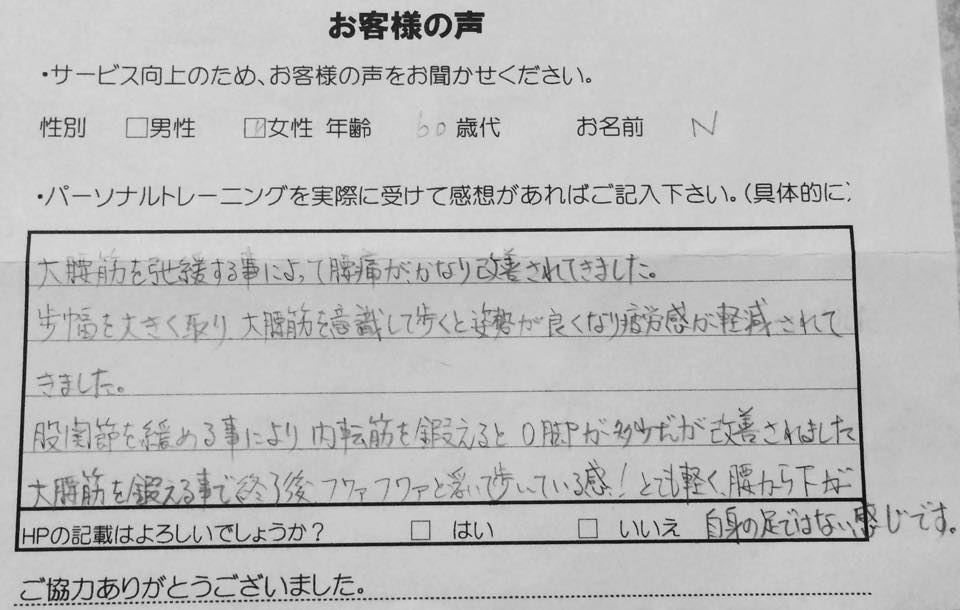 お客様の声
・サービス向上のため、お客様の声をお聞かせください。
性別 □男性 ☑女性 年齢 60歳代 お名前 N
・パーソナルトレーニングを実際に受けて感想があればご記入下さい。(具体的に)
大腰筋を弛緩する事によって腰痛が、かなり改善されてきました。
歩幅を大きく取り、大腰筋を意識して歩くと姿勢が良くなり疲労感が軽減されて
きました。
股関節を緩める事により、内転筋を鍛えるとO脚が多少だが改善されました
大腰筋を鍛える事で終了後、フワァフワァと浮いて歩いている感!とても軽く、腰から下が
自身の足ではない感じです。
HPの記載はよろしいでしょうか? □ はい □ いいえ
ご協力ありがとうございました。